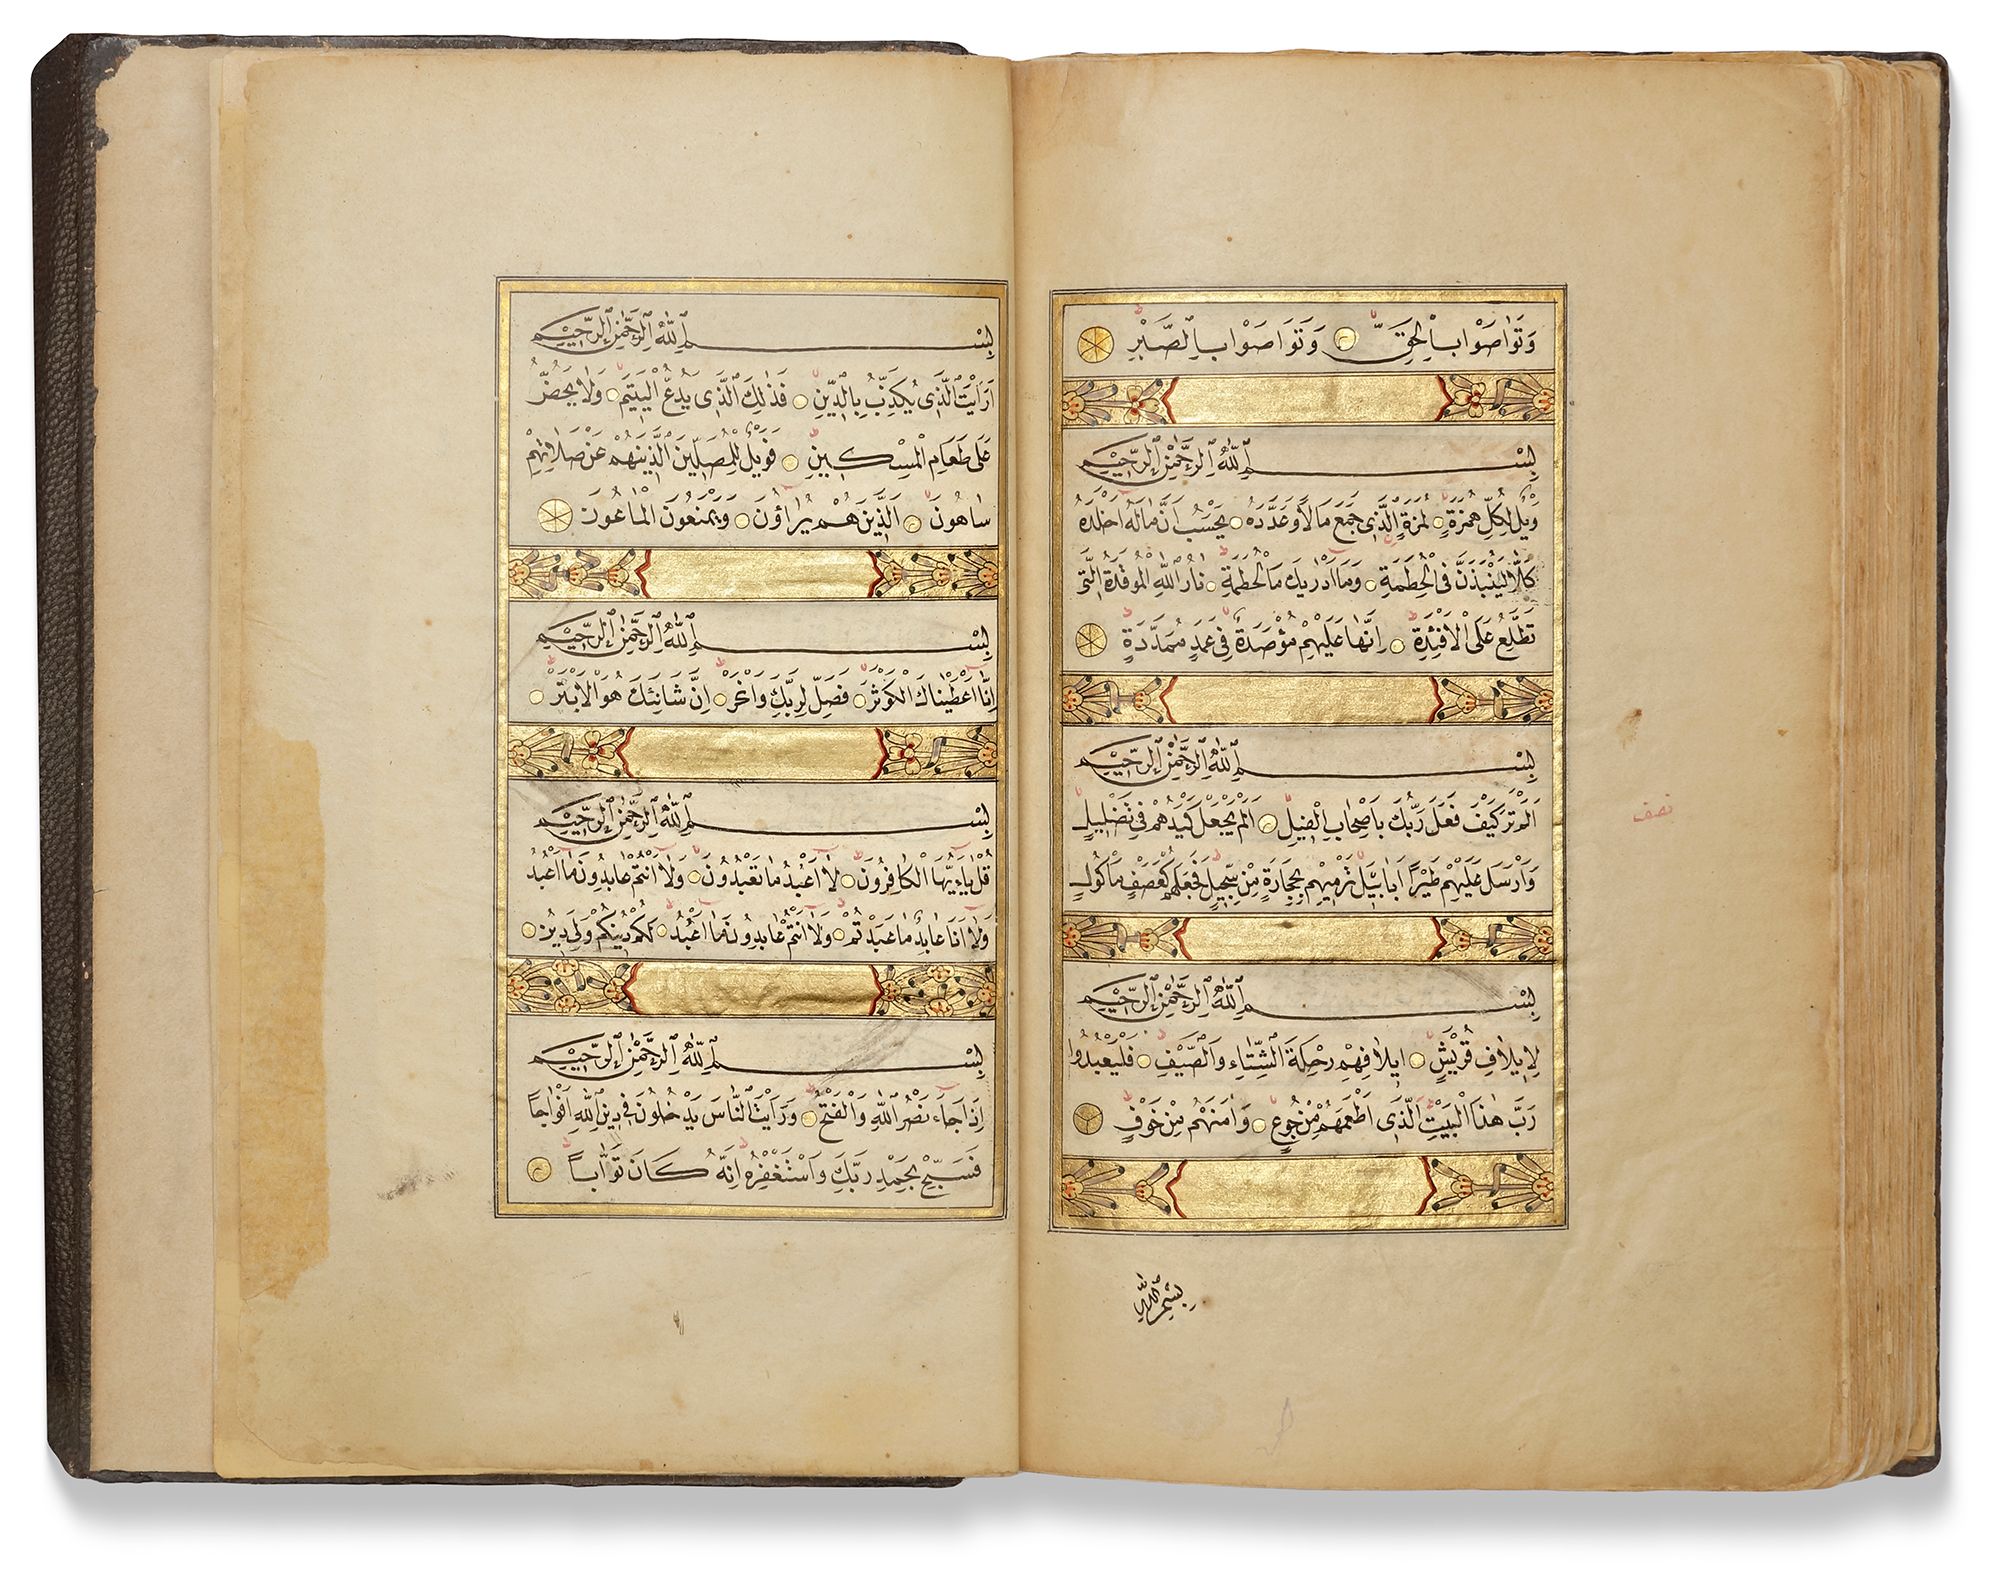 وَتَوَاصَوْا بِالْحَقِّ وَتَوَاصَوْا بِالصَّبْرِ
بِسْمِ اللّٰهِ الرَّحْمٰنِ الرَّحِيمِ
وَيْلٌ لِكُلِّ هُمَزَةٍ لُمَزَةٍ الَّذِى جَمَعَ مَالًا وَعَدَّدَهُ يَحْسَبُ اَنَّ مَالَهُ اَخْلَدَهُ
كَلَّا لَيُنْبَذَنَّ فِى الْحُطَمَةِ وَمَا اَدْرٰيكَ مَا الْحُطَمَةُ نَارُ اللّٰهِ الْمُوقَدَةُ الَّتِى
تَطَّلِعُ عَلَى الْاَفْئِدَةِ اِنَّهَا عَلَيْهِمْ مُؤْصَدَةٌ فِى عَمَدٍ مُمَدَّدَةٍ
بِسْمِ اللّٰهِ الرَّحْمٰنِ الرَّحِيمِ
اَلَمْ تَرَ كَيْفَ فَعَلَ رَبُّكَ بِاَصْحَابِ الْفِيلِ اَلَمْ يَجْعَلْ كَيْدَهُمْ فِى تَضْلِيلٍ
وَاَرْسَلَ عَلَيْهِمْ طَيْرًا اَبَابِيلَ تَرْمِيهِمْ بِحِجَارَةٍ مِنْ سِجِّيلٍ فَجَعَلَهُمْ كَعَصْفٍ مَاْكُولٍ
بِسْمِ اللّٰهِ الرَّحْمٰنِ الرَّحِيمِ
لِاِيلَافِ قُرَيْشٍ اِيلَافِهِمْ رِحْلَةَ الشِّتَاءِ وَالصَّيْفِ فَلْيَعْبُدُوا
رَبَّ هٰذَا الْبَيْتِ الَّذِى اَطْعَمَهُمْ مِنْ جُوعٍ وَاٰمَنَهُمْ مِنْ خَوْفٍ
نصف
بسم الله
بِسْمِ اللّٰهِ الرَّحْمٰنِ الرَّحِيمِ
اَرَاَيْتَ الَّذِى يُكَذِّبُ بِالدِّينِ فَذٰلِكَ الَّذِى يَدُعُّ الْيَتِيمَ وَلَا يَحُضُّ
عَلٰى طَعَامِ الْمِسْكِينِ فَوَيْلٌ لِلْمُصَلِّينَ الَّذِينَ هُمْ عَنْ صَلَاتِهِمْ
سَاهُونَ الَّذِينَ هُمْ يُرَاؤُنَ وَيَمْنَعُونَ الْمَاعُونَ
بِسْمِ اللّٰهِ الرَّحْمٰنِ الرَّحِيمِ
اِنَّا اَعْطَيْنَاكَ الْكَوْثَرَ فَصَلِّ لِرَبِّكَ وَانْحَرْ اِنَّ شَانِئَكَ هُوَ الْاَبْتَرُ
بِسْمِ اللّٰهِ الرَّحْمٰنِ الرَّحِيمِ
قُلْ يَا اَيُّهَا الْكَافِرُونَ لَا اَعْبُدُ مَا تَعْبُدُونَ وَلَا اَنْتُمْ عَابِدُونَ مَا اَعْبُدُ
وَلَا اَنَا عَابِدٌ مَا عَبَدْتُمْ وَلَا اَنْتُمْ عَابِدُونَ مَا اَعْبُدُ لَكُمْ دِينُكُمْ وَلِىَ دِينِ
بِسْمِ اللّٰهِ الرَّحْمٰنِ الرَّحِيمِ
اِذَا جَاءَ نَصْرُ اللّٰهِ وَالْفَتْحُ وَرَاَيْتَ النَّاسَ يَدْخُلُونَ فِى دِينِ اللّٰهِ اَفْوَاجًا
فَسَبِّحْ بِحَمْدِ رَبِّكَ وَاسْتَغْفِرْهُ اِنَّهُ كَانَ تَوَّابًا